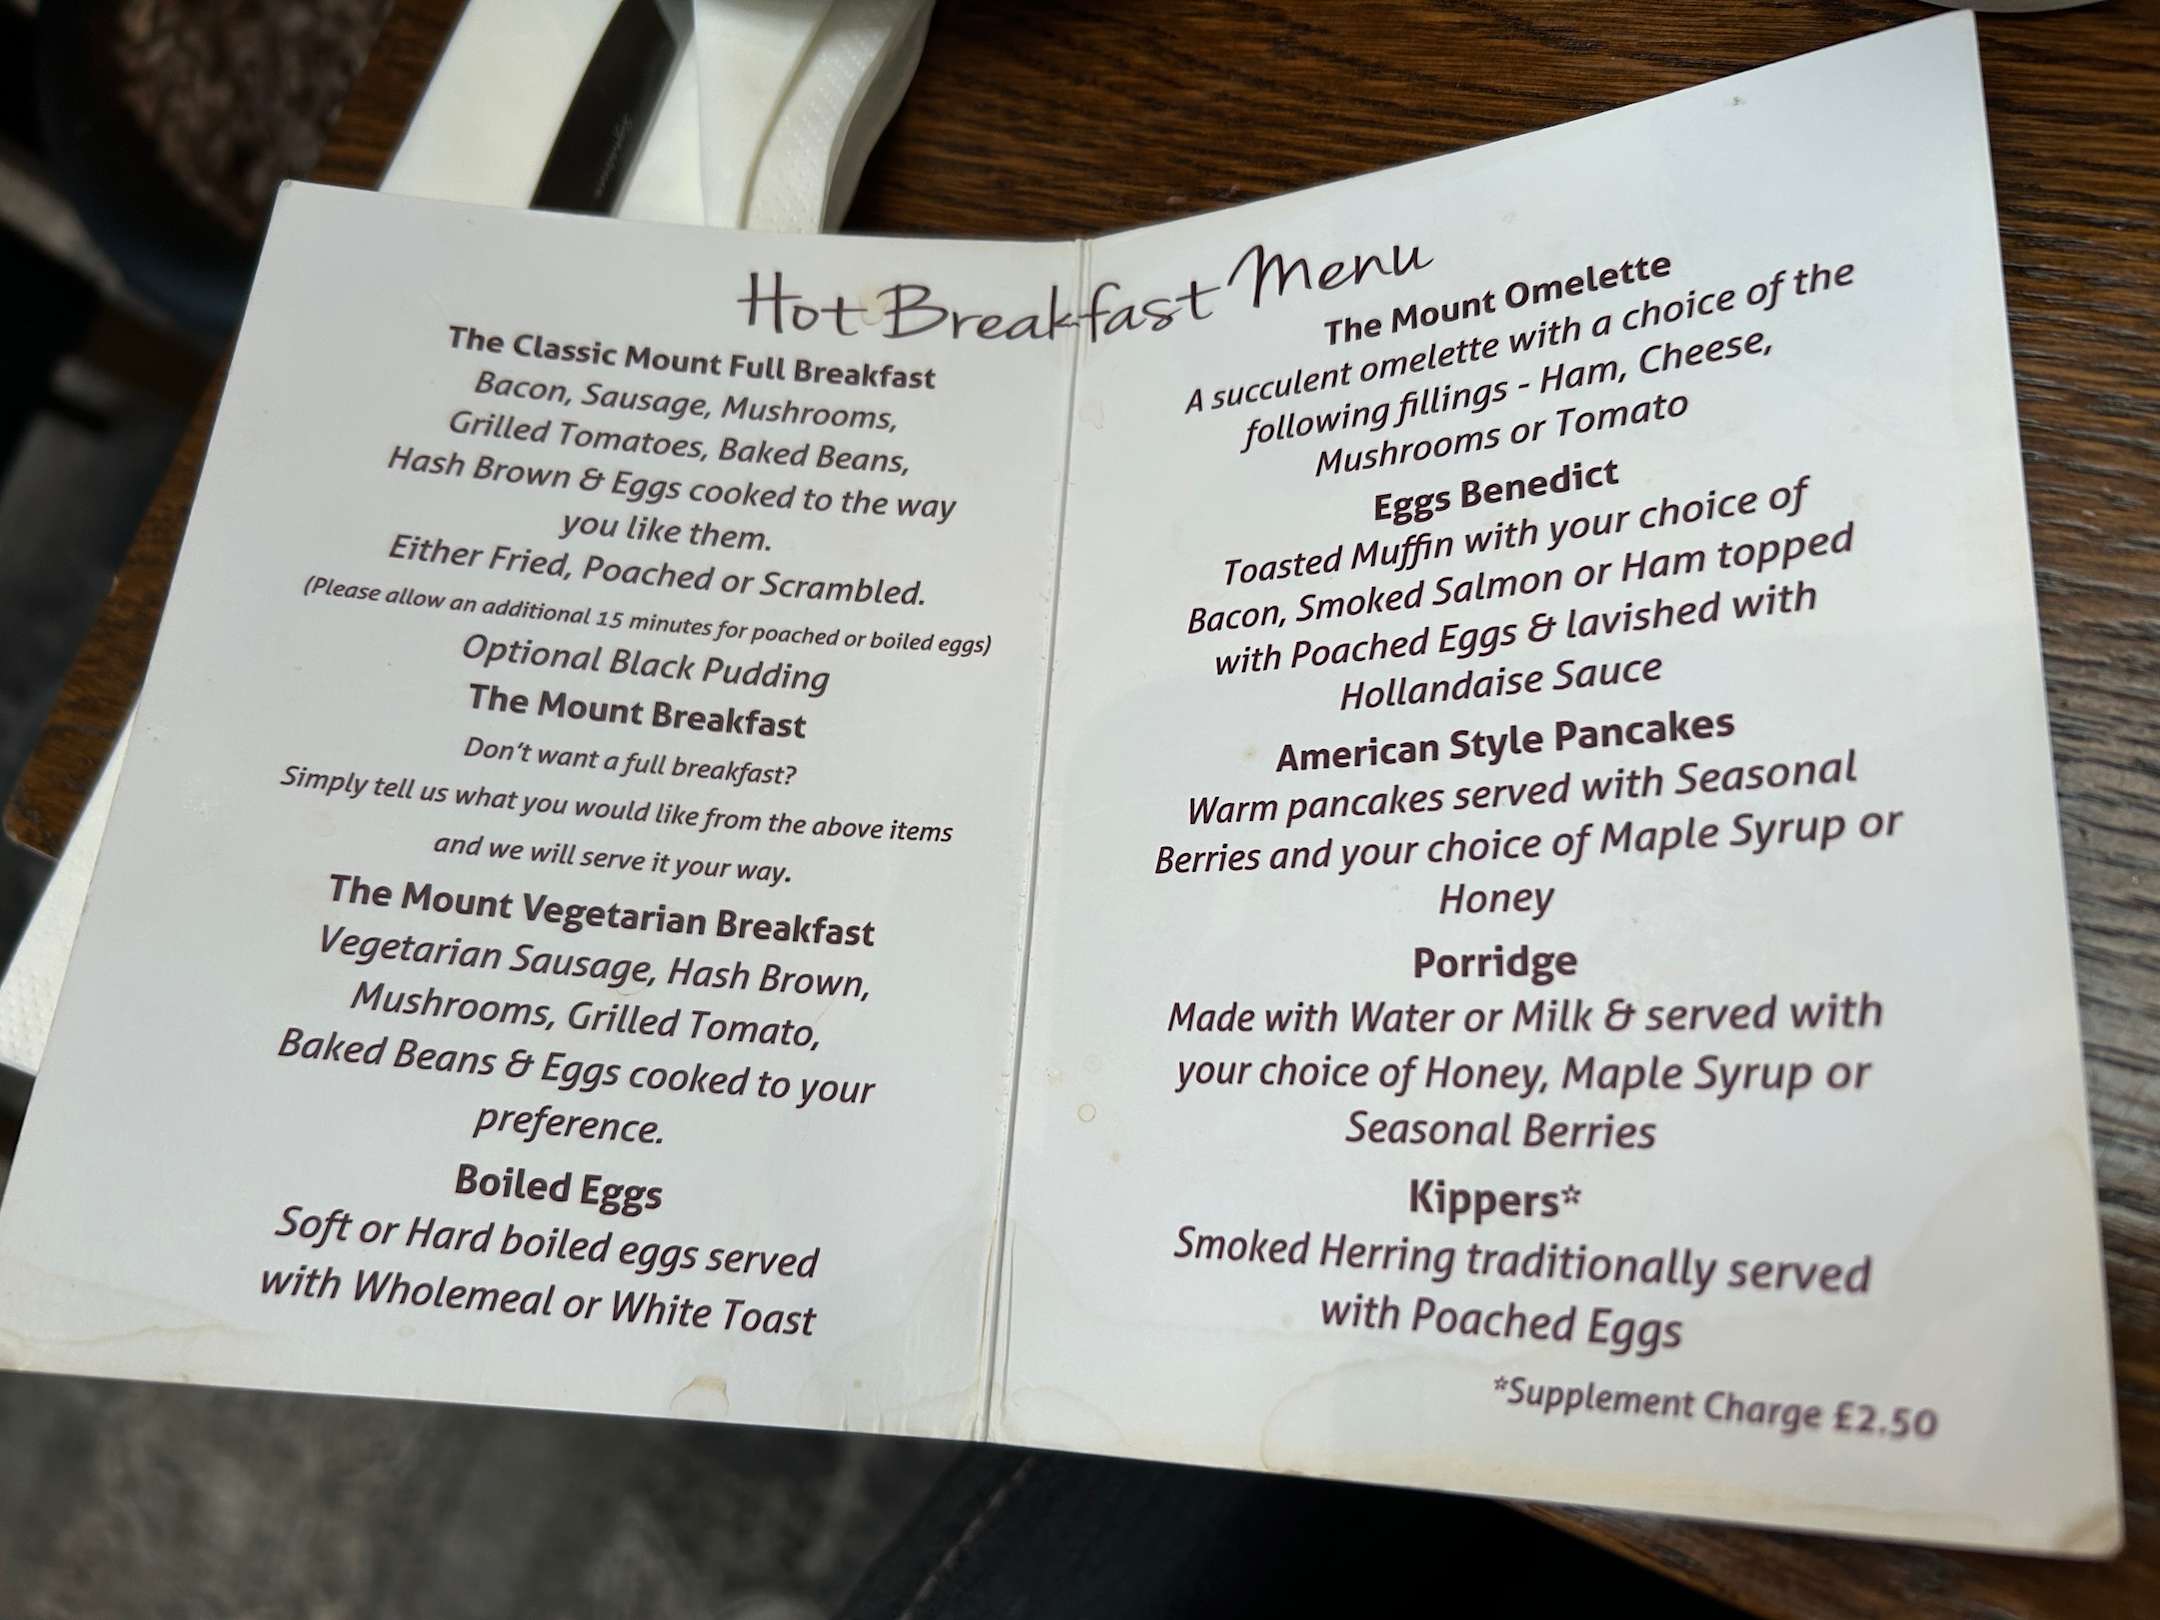 Hot Breakfast Menu
The Classic Mount Full Breakfast
Bacon, Sausage, Mushrooms,
Grilled Tomatoes, Baked Beans,
Hash Brown & Eggs cooked to the way
you like them.
Either Fried, Poached or Scrambled.
(Please allow an additional 15 minutes for poached or boiled eggs)
Optional Black Pudding
The Mount Breakfast
Don't want a full breakfast?
Simply tell us what you would like from the above items
and we will serve it your way.
The Mount Vegetarian Breakfast
Vegetarian Sausage, Hash Brown,
Mushrooms, Grilled Tomato,
Baked Beans & Eggs cooked to your
preference.
Boiled Eggs
Soft or Hard boiled eggs served
with Wholemeal or White Toast
The Mount Omelette
A succulent omelette with a choice of the
following fillings - Ham, Cheese,
Mushrooms or Tomato
Eggs Benedict
Toasted Muffin with your choice of
Bacon, Smoked Salmon or Ham topped
with Poached Eggs & lavished with
Hollandaise Sauce
American Style Pancakes
Warm pancakes served with Seasonal
Berries and your choice of Maple Syrup or
Honey
Porridge
Made with Water or Milk & served with
your choice of Honey, Maple Syrup or
Seasonal Berries
Kippers*
Smoked Herring traditionally served
with Poached Eggs
*Supplement Charge £2.50